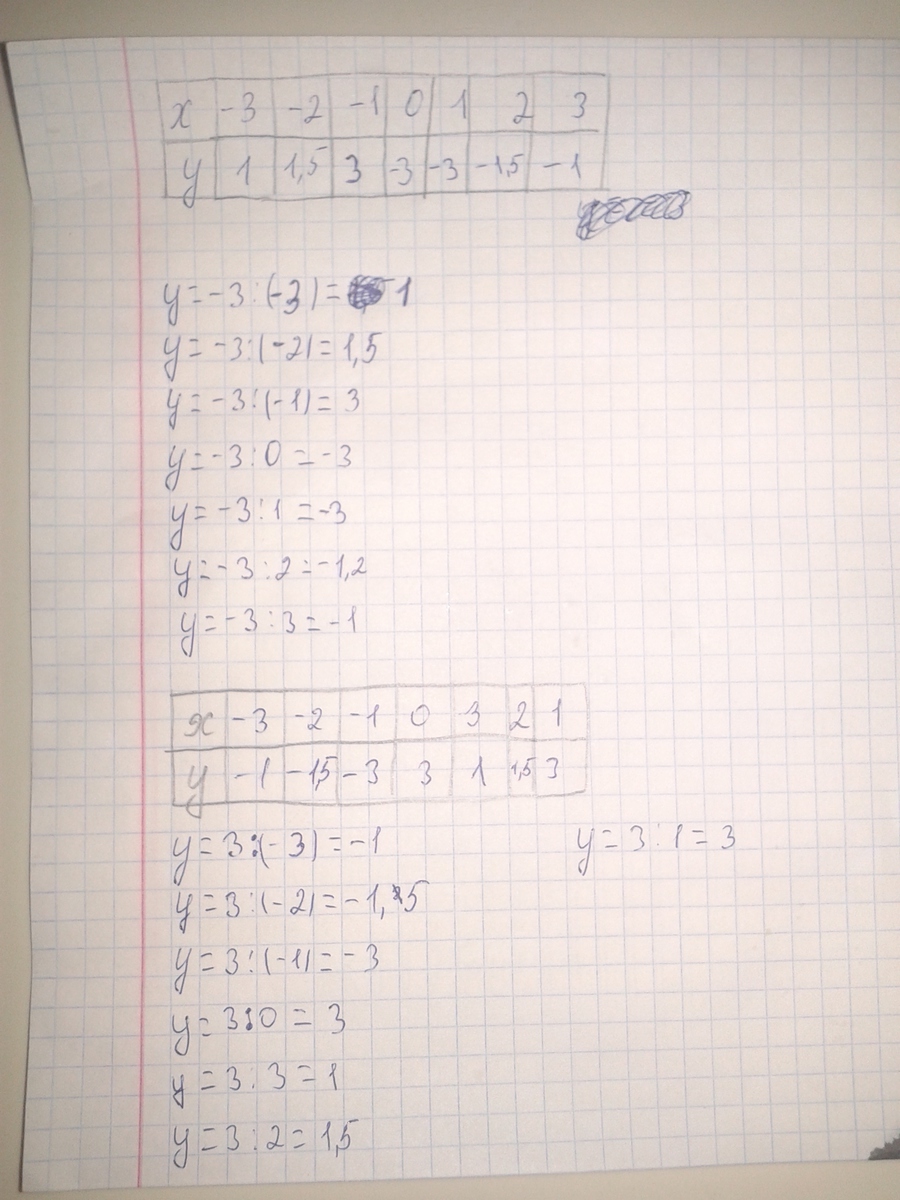 x -3 -2 -1 0 1 2 3
y 1 1,5 3 -3 -3 -1,5 -1
y = -3 : (-3) = 1
y = -3 : (-2) = 1,5
y = -3 : (-1) = 3
y = -3 : 0 = -3
y = -3 : 1 = -3
y = -3 : 2 = -1,2
y = -3 : 3 = -1
x -3 -2 -1 0 3 2 1
y -1 -1,5 -3 3 1 1,5 3
y = 3 : (-3) = -1
y = 3 : 1 = 3
y = 3 : (-2) = -1,5
y = 3 : (-1) = -3
y = 3 : 0 = 3
y = 3 : 3 = 1
y = 3 : 2 = 1,5